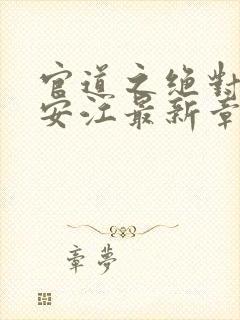 官道之绝對
安江最新章
章夢